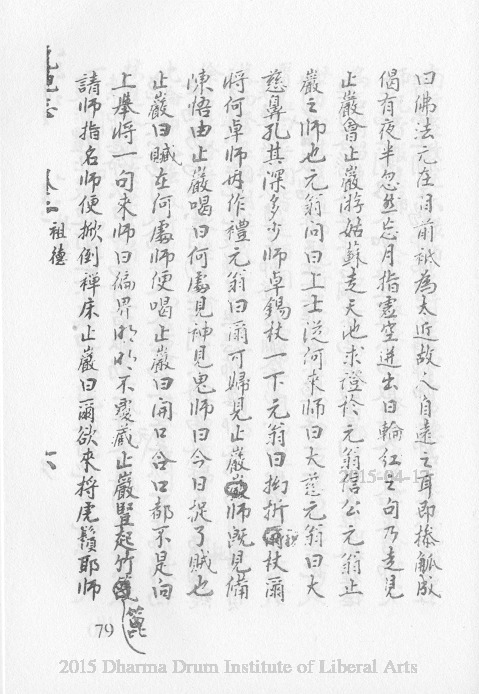 曰佛法元在目前祗為太近故人自遠之耳即捧觚成
偈有夜半忽然忘月指虛空迸出日輪紅之句乃走見
止巖會止巖游姑蘇走天池求證於元翁信公元翁止
巖之師也元翁問曰上士從何來師曰大慈元翁曰大
慈鼻孔其深多少師卓錫杖一下元翁曰拗折杖爾
將何卓師內作禮元翁曰爾可歸見止巖師既見備
陳悟由止巖喝曰何處見神見鬼師曰今日捉了賊也
止巖曰贓在何處師便喝止巖曰開口合口都不是向
上舉將一句來師曰徧界明明不覆藏止巖豎起竹篦
請師指名師便掀倒禪床止巖曰爾欲來捋虎鬚耶師
祖德
六
79
2015-04-17
2015 Dharma Drum Institute of Liberal Arts